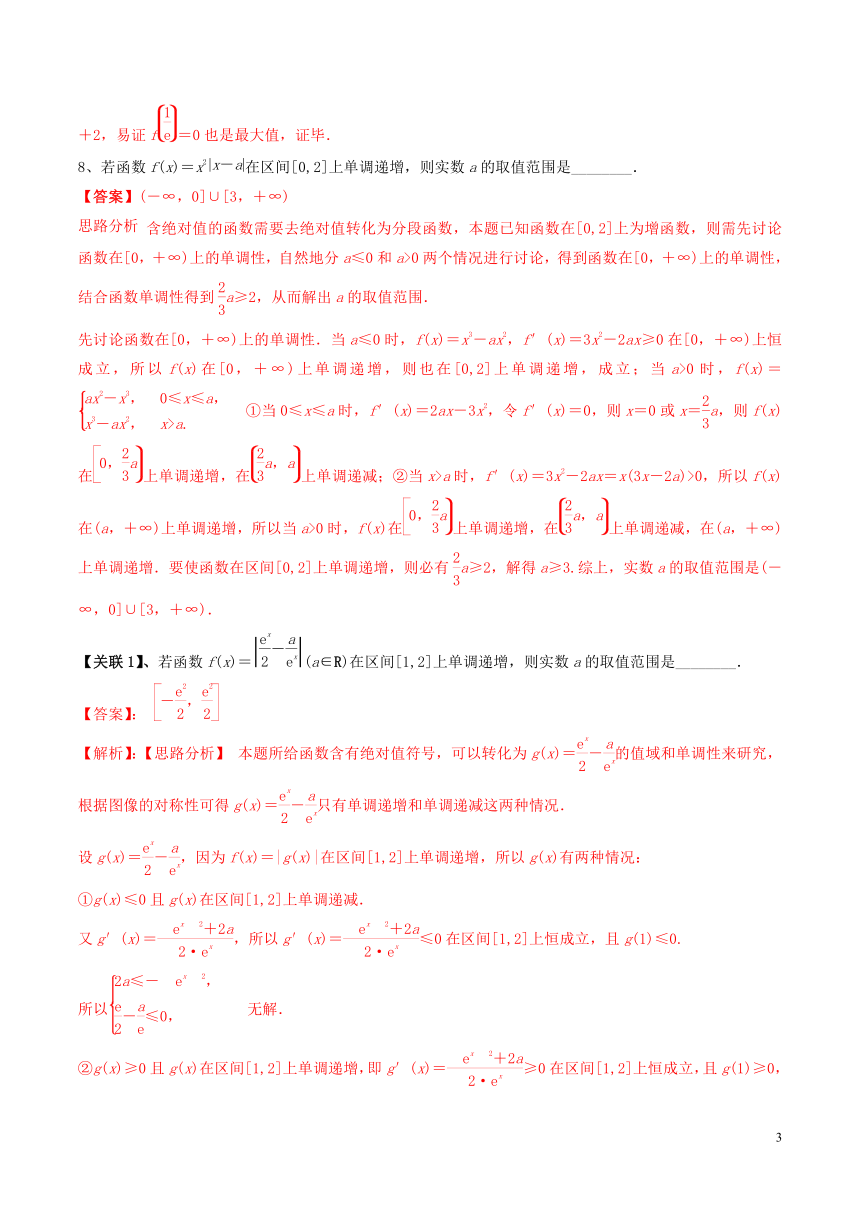 +2,易证 f(1/e)=0也是最大值,证毕.
8、若函数 f(x)=x²|x-a|在区间[0,2]上单调递增,则实数 a 的取值范围是________.
【答案】(-∞,0]∪[3,+∞)
思路分析 含绝对值的函数需要去绝对值转化为分段函数,本题已知函数在[0,2]上为增函数,则需先讨论
函数在[0,+∞)上的单调性,自然地分 a≤0 和 a>0 两个情况进行讨论,得到函数在[0,+∞)上的单调性,
结合函数单调性得到2/3a≥2,从而解出 a 的取值范围.
先讨论函数在[0,+∞)上的单调性.当 a≤0 时,f(x)=x³-ax²,f′(x)=3x²-2ax≥0 在[0,+∞)上恒
成立,所以 f(x)在[0,+∞)上单调递增,则也在[0,2]上单调递增,成立;当 a>0 时,f(x)=
{ax²-x³, 0≤x≤a, x³-ax², x>a. ①当 0≤x≤a 时,f′(x)=2ax-3x²,令 f′(x)=0,则 x=0 或 x=2/3a,则 f(x)
在[0,2/3a)上单调递增,在(2/3a,a)上单调递减;②当 x>a 时,f′(x)=3x²-2ax=x(3x-2a)>0,所以 f(x)
在(a,+∞)上单调递增,所以当 a>0 时,f(x)在[0,2/3a)上单调递增,在(2/3a,a)上单调递减,在(a,+∞)
上单调递增.要使函数在区间[0,2]上单调递增,则必有2/3a≥2,解得 a≥3.综上,实数 a 的取值范围是(-
∞,0]∪[3,+∞).
【关联1】、若函数 f(x)=|eˣ/2-a/eˣ|(a∈R)在区间[1,2]上单调递增,则实数 a 的取值范围是________.
【答案】: [-e²/2,e²/2]
【解析】:【思路分析】 本题所给函数含有绝对值符号,可以转化为 g(x)=eˣ/2-a/eˣ的值域和单调性来研究,
根据图像的对称性可得 g(x)=eˣ/2-a/eˣ只有单调递增和单调递减这两种情况.
设 g(x)=eˣ/2-a/eˣ,因为 f(x)=|g(x)|在区间[1,2]上单调递增,所以 g(x)有两种情况:
①g(x)≤0 且 g(x)在区间[1,2]上单调递减.
又 g′(x)=eˣ ²+2a/2·eˣ,所以 g′(x)=eˣ ²+2a/2·eˣ≤0 在区间[1,2]上恒成立,且 g(1)≤0.
所以{2a≤- eˣ ², e/2-a/e≤0, 无解.
②g(x)≥0 且 g(x)在区间[1,2]上单调递增,即 g′(x)=eˣ ²+2a/2·eˣ≥0 在区间[1,2]上恒成立,且 g(1)≥0,
3